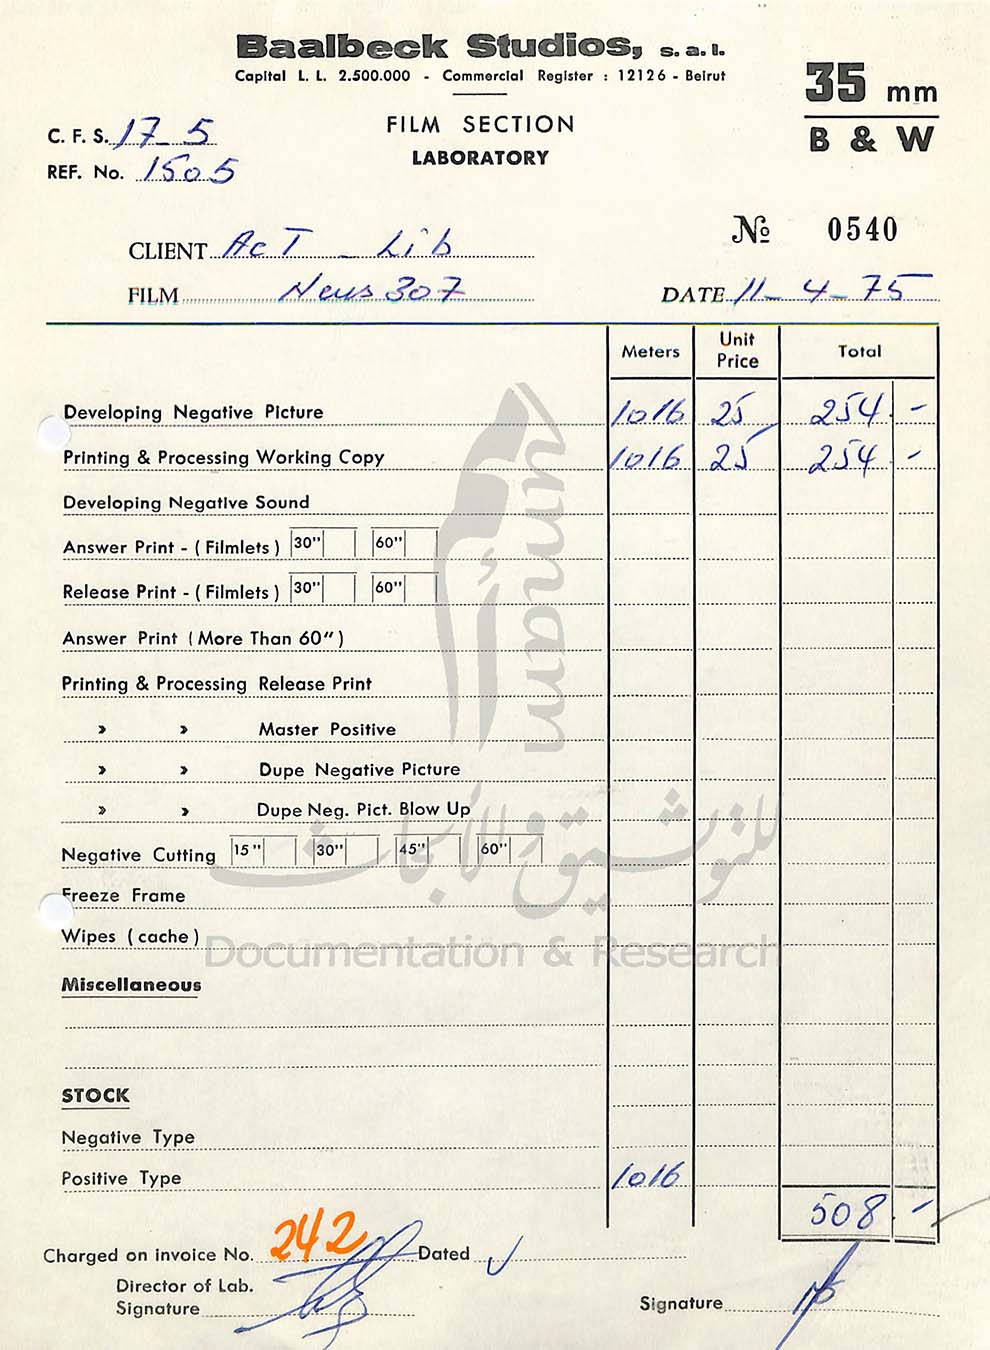 Baalbeck Studios, s.a.l.
Capital L. L. 2.500.000 - Commercial Register : 12126 - Beirut
35 mm
B & W
FILM SECTION
LABORATORY
C. F. S. 17_5
REF. No. 1505
No 0540
CLIENT Act _ Lib
FILM News 307
DATE 11_4_75
Meters Unit Price Total
Developing Negative Picture 1016 25 254 -
Printing & Processing Working Copy 1016 25 254 -
Developing Negative Sound
Answer Print - ( Filmlets ) 30" 60"
Release Print - ( Filmlets ) 30" 60"
Answer Print ( More Than 60" )
Printing & Processing Release Print
» » Master Positive
» » Dupe Negative Picture
» » Dupe Neg. Pict. Blow Up
Negative Cutting 15" 30" 45" 60"
Freeze Frame
Wipes ( cache )
Miscellaneous
STOCK
Negative Type
Positive Type 1016
508 -
Charged on invoice No. 242 Dated
Director of Lab.
Signature
Signature
umam
للتوثيق والأبحاث
Documentation & Research